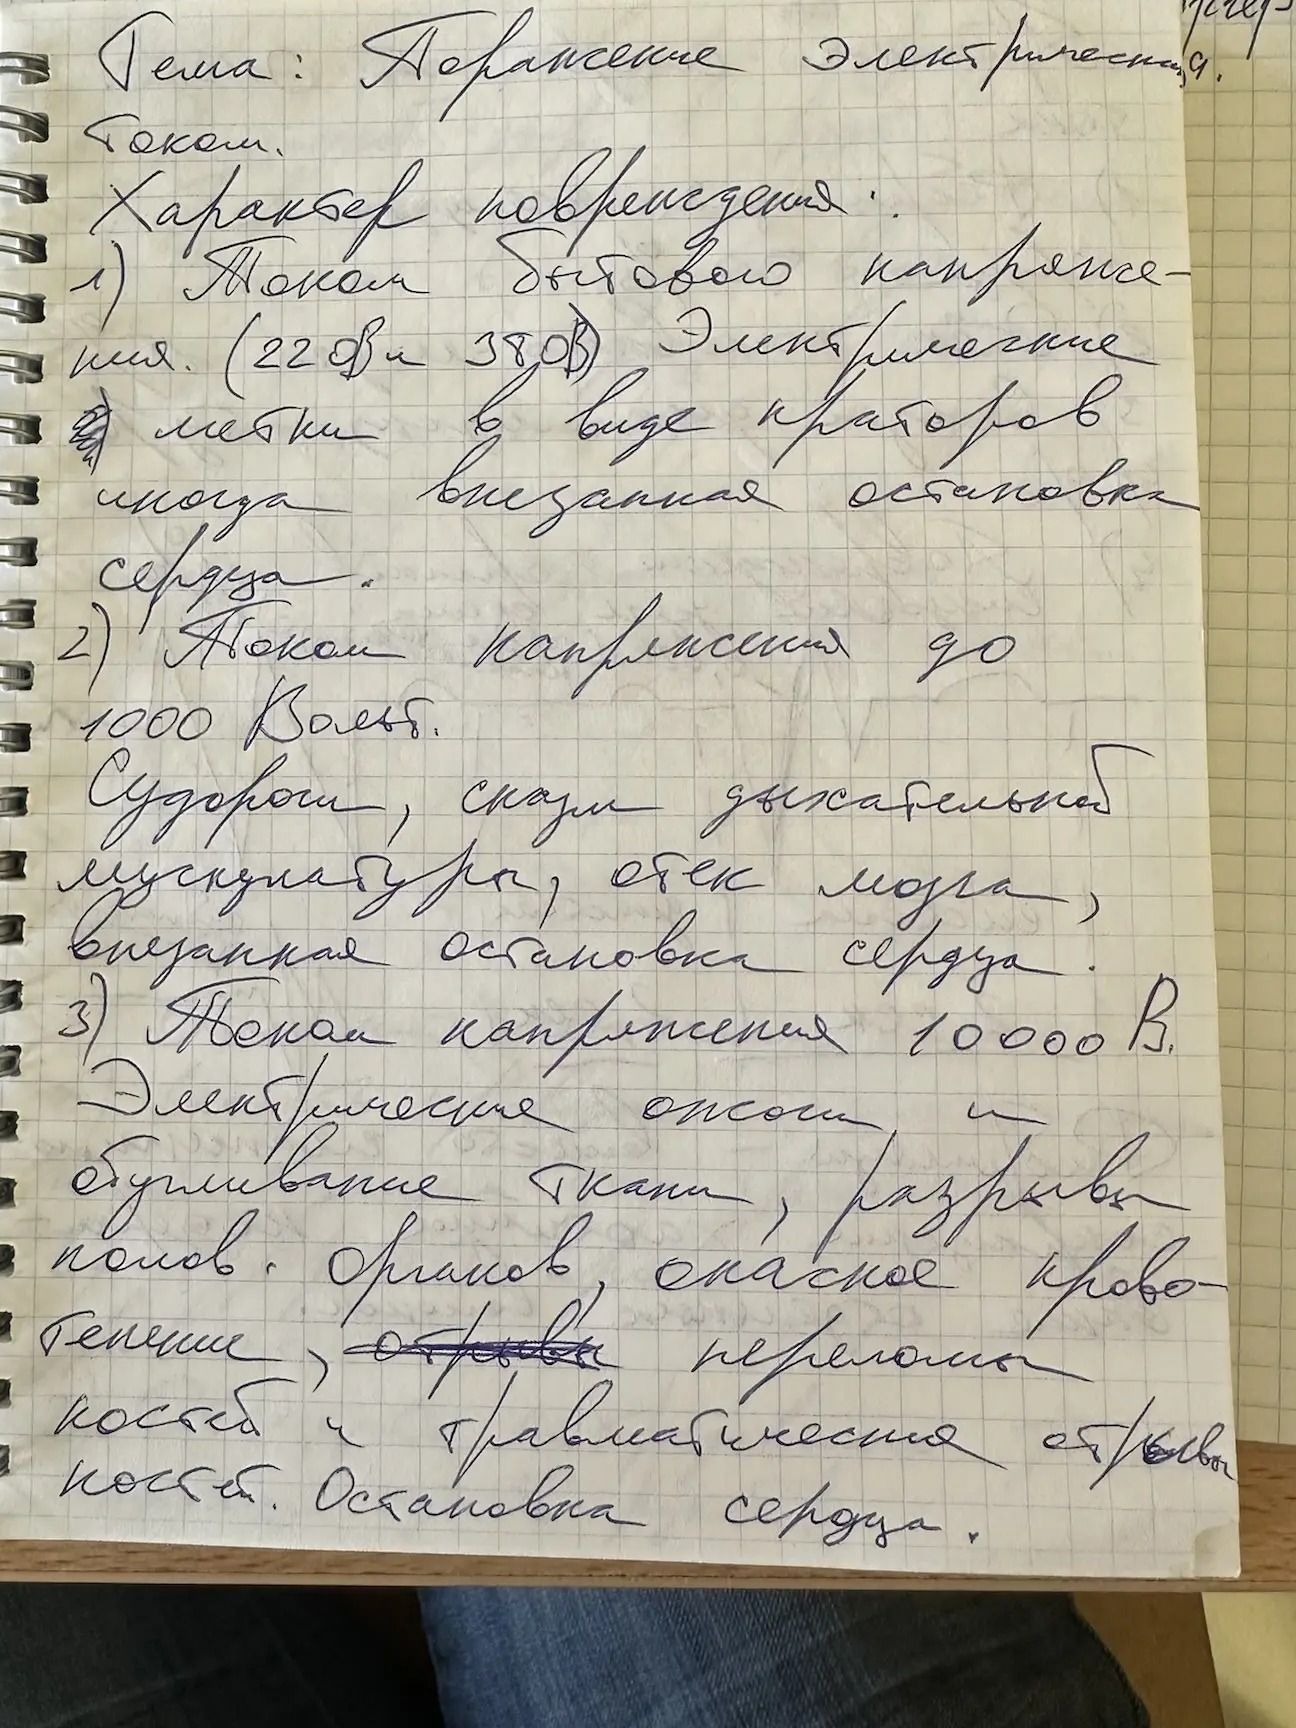 Тема: Поражение электрическим
током.
Характер повреждения:
1) Током бытового напряже-
ния. (220В и 380В) Электрические
метки в виде кратеров
иногда внезапная остановка
сердца.
2) Током напряжения до
1000 Вольт.
Судороги, спазм дыхательной
мускулатуры, отек мозга,
внезапная остановка сердца.
3) Током напряжения 10000 В.
Электрические ожоги и
обугливание ткани, разрывы
полов. органов, опасное крово-
течение, отрывы переломы
костей и травматические отрывы
костей. Остановка сердца.